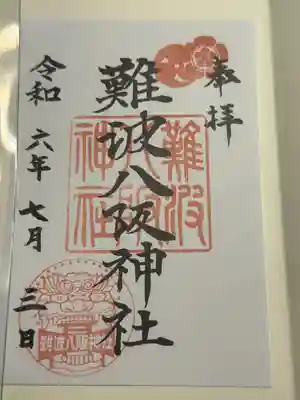 奉拝
難波八阪神社
令和六年七月三日
難波八阪神社
難波八阪神社